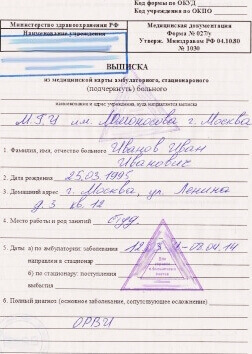 Код формы по ОКУД
Код учреждения по ОКПО
Министерство здравоохранения РФ
Наименование учреждения
Медицинская документация
Форма № 027/у
Утверж. Минздравом РФ 04.10.80
№ 1030
ВЫПИСКА
из медицинской карты амбулаторного, стационарного
(подчеркнуть) больного
наименование и адрес учреждения, куда направляется выписка
МГУ им. Ломоносова г. Москва
1. Фамилия, имя, отчество больного Иванов Иван
Иванович
2. Дата рождения 25.03.1995
3. Домашний адрес г. Москва, ул. Ленина
д. 3 кв. 12
4. Место работы и род занятий студ.
5. Даты: а) по амбулатории: заболевания
направлен в стационар
б) по стационару: поступления
выбытия
6. Полный диагноз (основное заболевание, сопутствующее осложнение)
ОРВИ